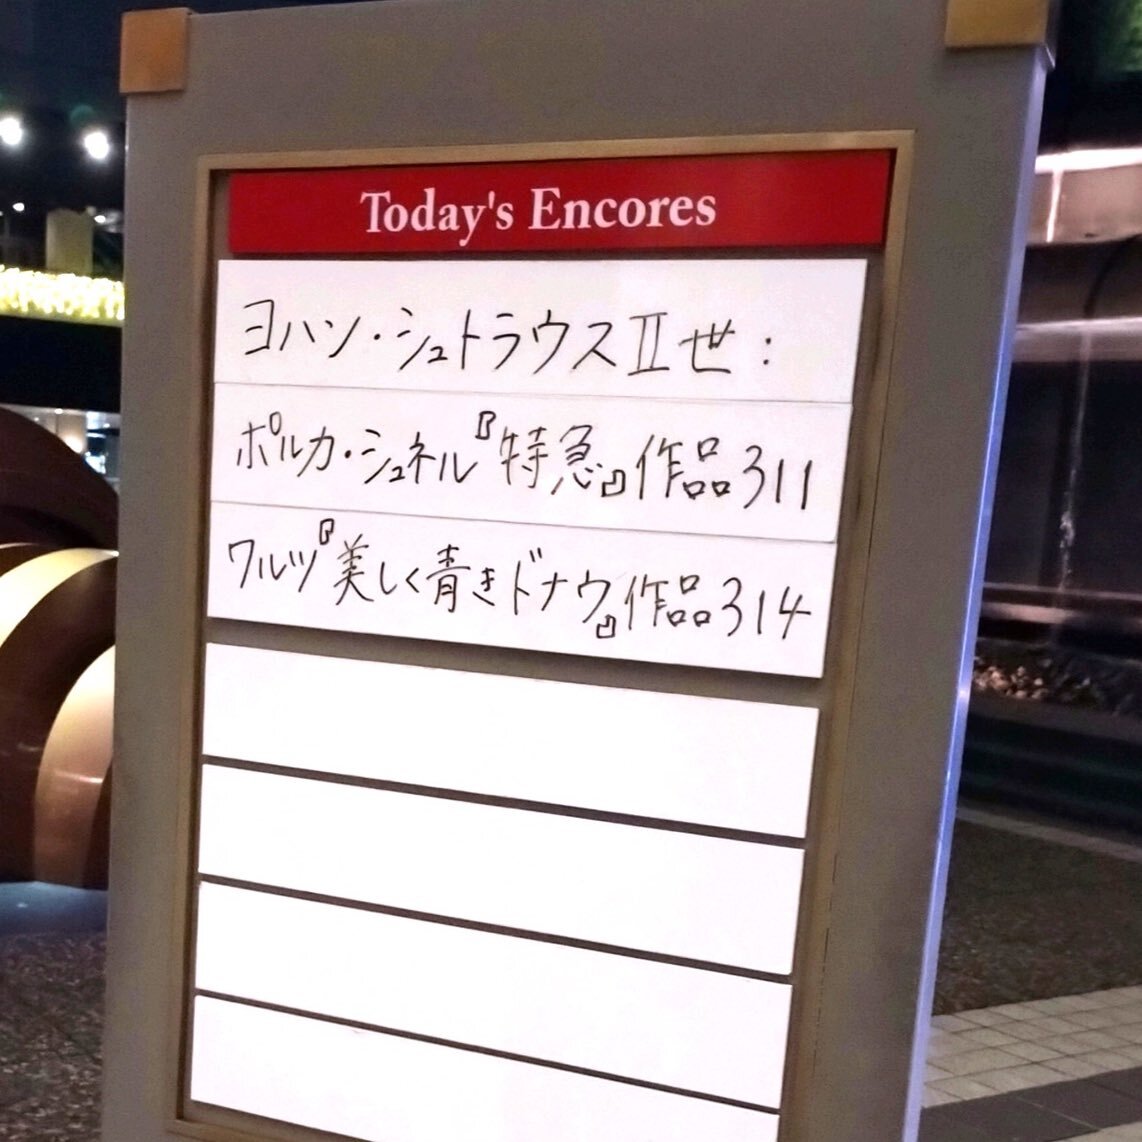 Today's Encores
ヨハン・シュトラウスⅡ世:
ポルカ・シュネル『特急』作品311
ワルツ『美しく青きドナウ』作品314